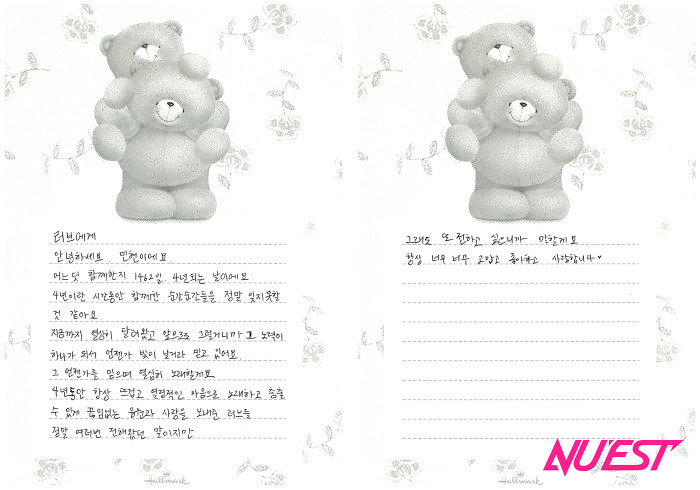 러브에게
안녕하세요 민현이에요
어느덧 함께한지 1462일. 4년되는 날이에요
4년이란 시간동안 함께한 순간순간들을 정말 잊지못할
것 같아요
지금까지 열심히 달려왔고 앞으로도 그럴거니까 그 노력이
하나가 되서 언젠가 빛이 날거라 믿고 있어요
그 언젠가를 믿으며 열심히 노래할게요
4년동안 항상 뜨겁고 열정적인 마음으로 노래하고 춤출
수 있게 끊임없는 응원과 사랑을 보내준 러브들
정말 여러번 전해왔던 말이지만
Hallmark
그래도 또 전하고 싶으니까 말할게요
항상 너무 너무 고맙고 좋아하고 사랑합니다♥
Hallmark
NU'EST